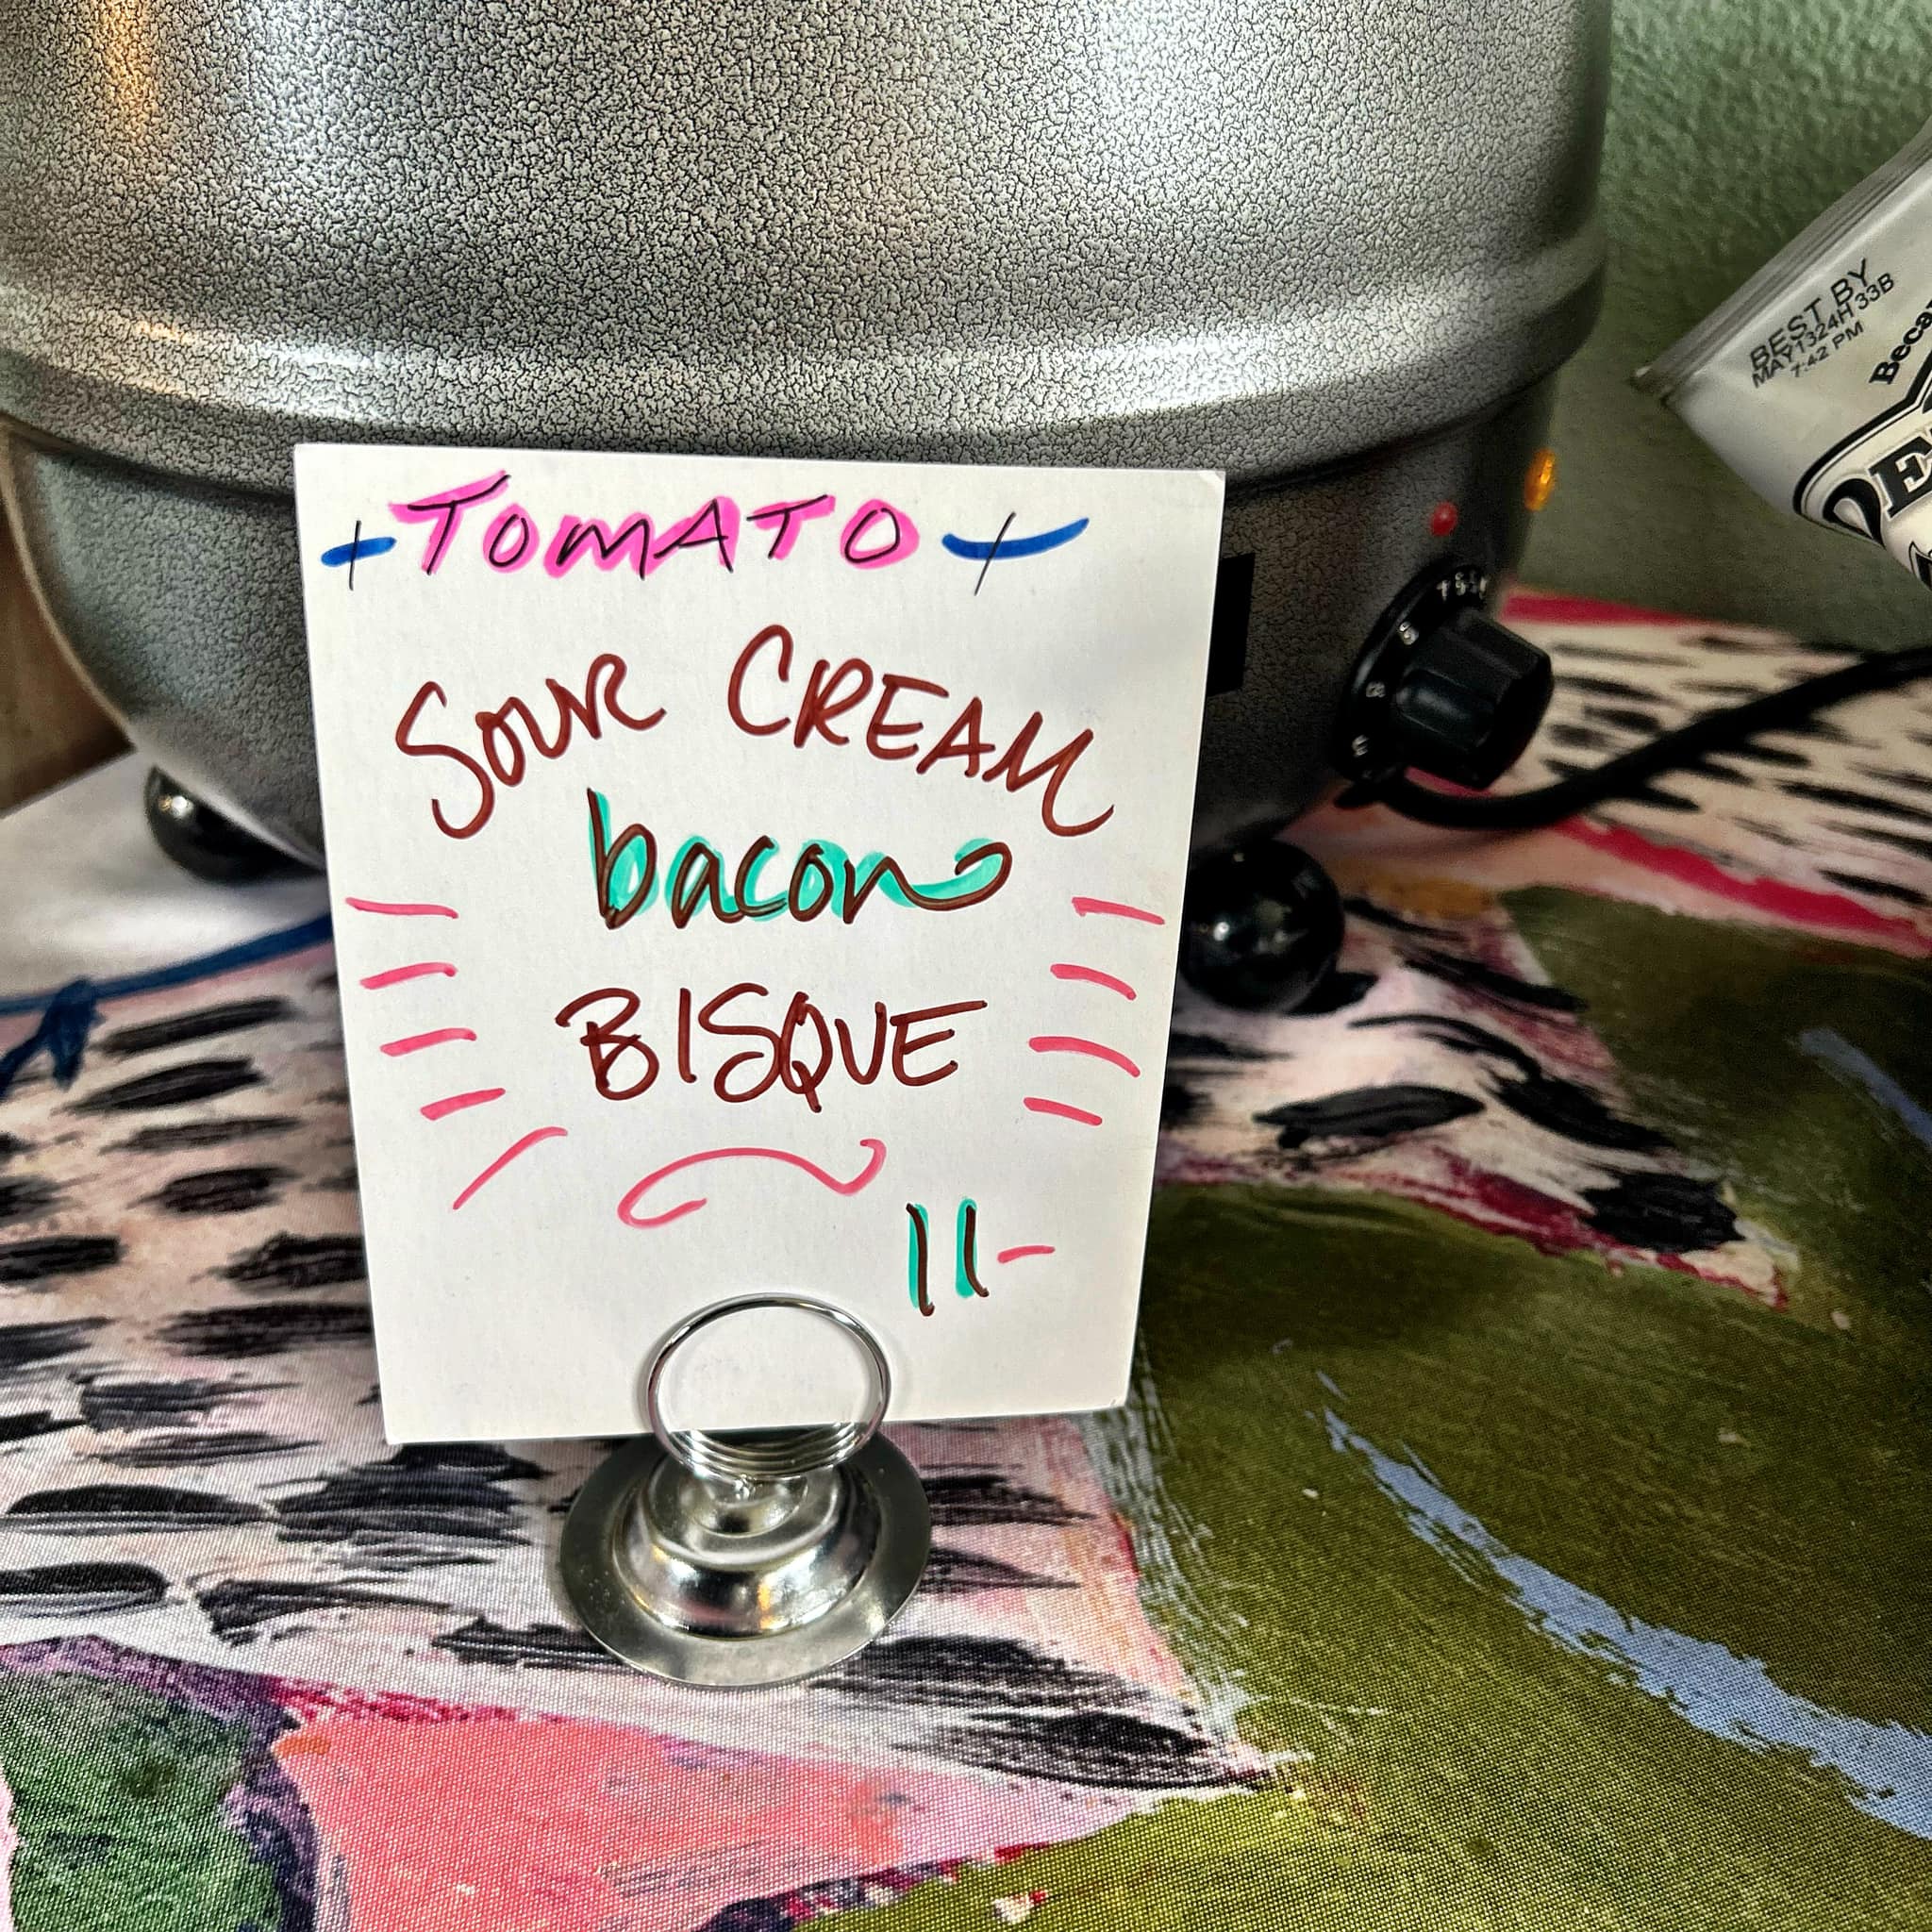 TOMATO
SOUR CREAM
bacon
BISQUE
11-
BEST BY
MAY1324H 33B
7:42 PM